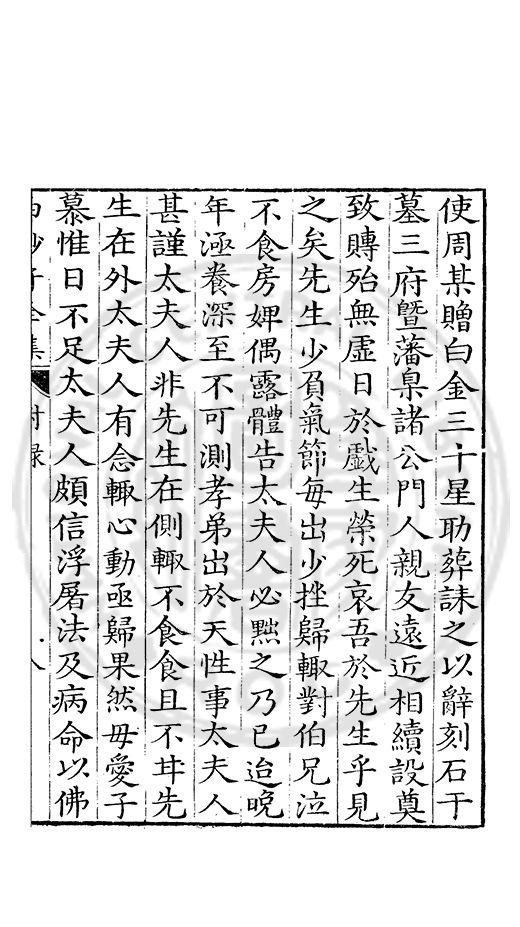 使周某贈白金三十星助葬誄之以辭刻石于
墓三府暨藩臬諸公門人親友遠近相續設奠
致賻殆無虛日於戲生榮死哀吾於先生乎見
之矣先生少負氣節每出少挫歸輒對伯兄泣
不食房婢偶露體告太夫人必黜之乃已迨晚
年涵養深至不可測孝弟出於天性事太夫人
甚謹太夫人非先生在側輒不食食且不甘先
生在外太夫人有念輒心動亟歸果然母愛子
慕惟日不足太夫人頗信浮屠法及病命以佛
子全集 附录